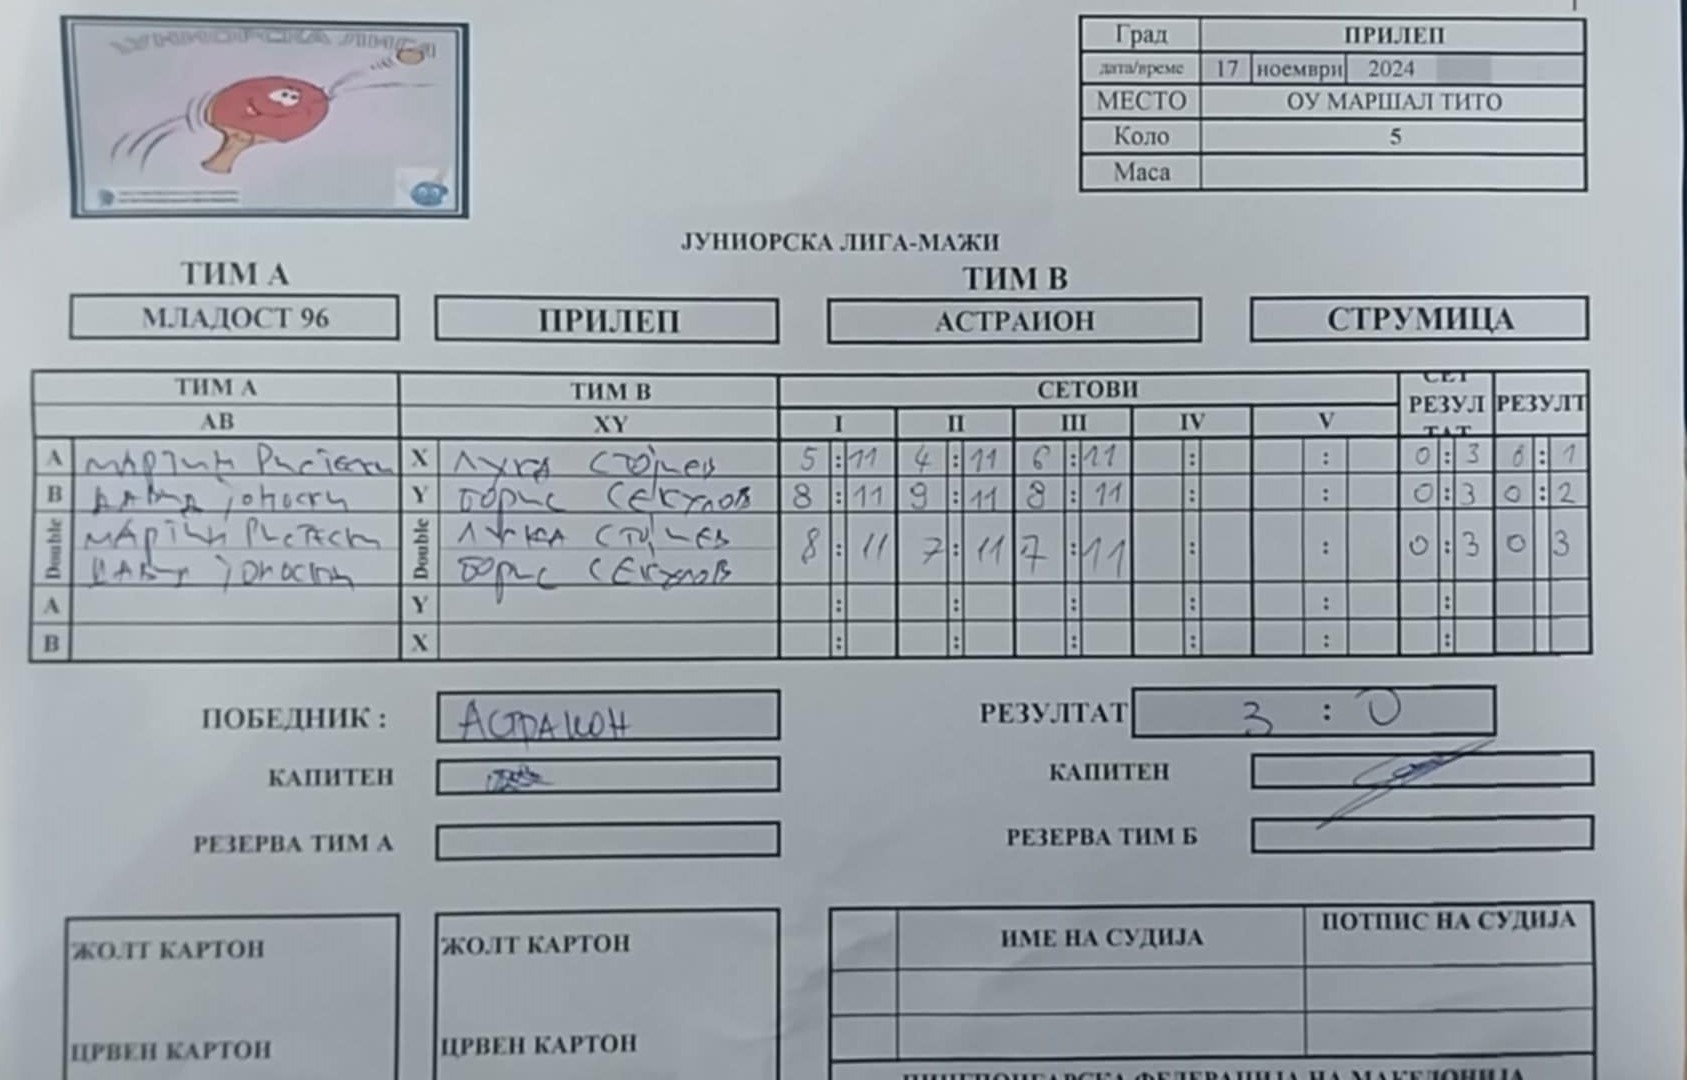 ЈУНИОРСКА ЛИГА
Град ПРИЛЕП
дата/време 17 ноември 2024
МЕСТО ОУ МАРШАЛ ТИТО
Коло 5
Маса
ЈУНИОРСКА ЛИГА-МАЖИ
ТИМ А ТИМ В
МЛАДОСТ 96 ПРИЛЕП АСТРАИОН СТРУМИЦА
ТИМ А ТИМ В СЕТОВИ СЕТ РЕЗУЛТАТ РЕЗУЛТ
АВ XY I II III IV V
A Мартин Ристески X Лука Стојчев 5 : 11 4 : 11 6 : 11 : : 0 : 3 0 : 1
B Давид Јоноски Y Борис Секулов 8 : 11 9 : 11 8 : 11 : : 0 : 3 0 : 2
Double Мартин Ристески Double Лука Стојчев 8 : 11 7 : 11 7 : 11 : : 0 : 3 0 3
Давид Јоноски Борис Секулов
A Y : : : : : :
B X : : : : : :
ПОБЕДНИК : АСТРАИОН РЕЗУЛТАТ 3 : 0
КАПИТЕН КАПИТЕН
РЕЗЕРВА ТИМ А РЕЗЕРВА ТИМ Б
ЖОЛТ КАРТОН ЖОЛТ КАРТОН ИМЕ НА СУДИЈА ПОТПИС НА СУДИЈА
ЦРВЕН КАРТОН ЦРВЕН КАРТОН
ПИНГПОНГАРСКА ФЕДЕРАЦИЈА НА МАКЕДОНИЈА